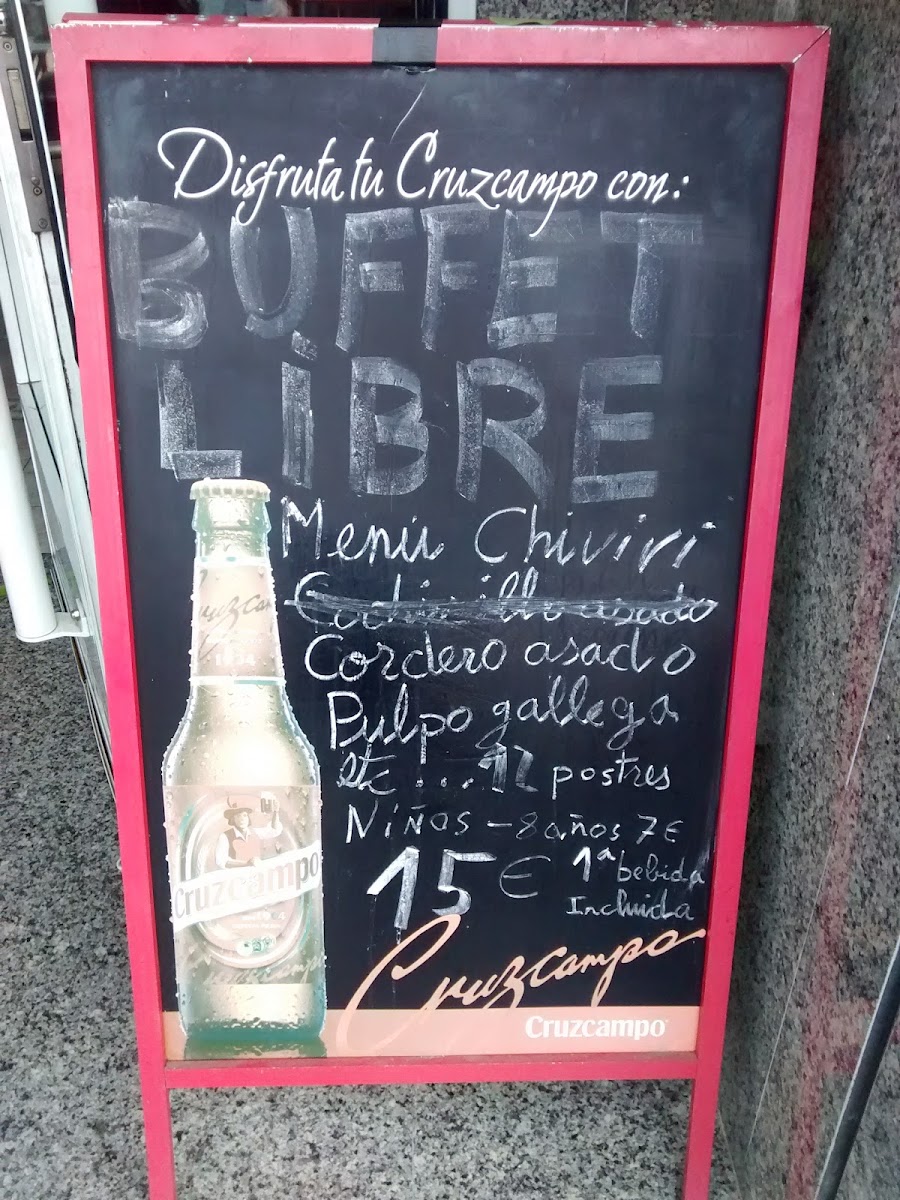 Disfruta tu Cruzcampo con:
BUFFET
LiBRE
Menú Chiviri
Cochinillo asado
Cordero asado
Pulpo gallega
etc ... 12 postres
Niños - 8 años 7€
15 € 1ª bebida
Incluida
Cruzcampo
Cruzcampo
Cruzcampo